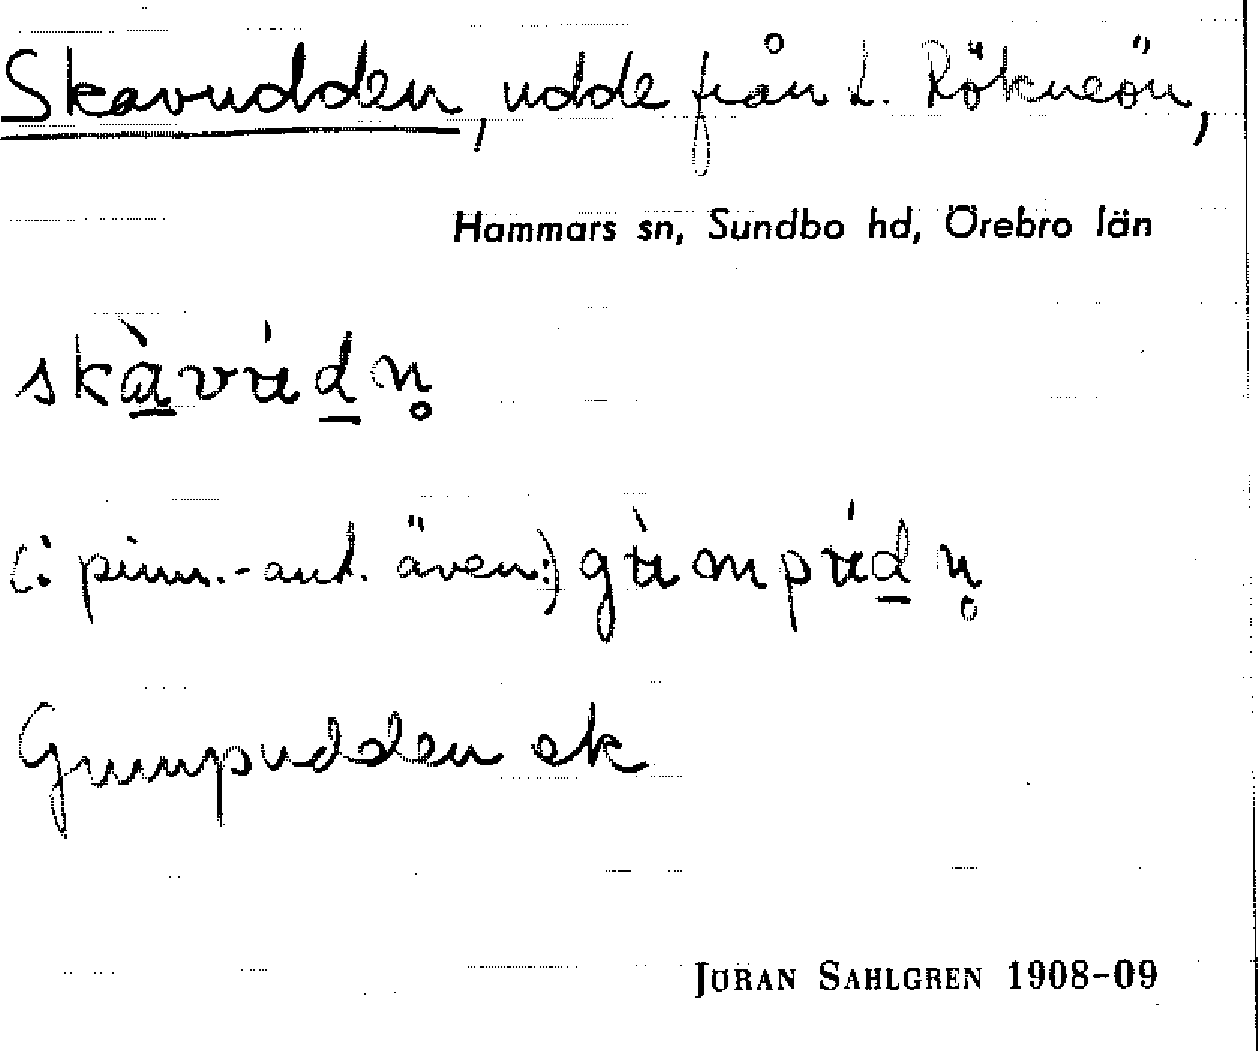 Skavudden, udde från L. Rökneön,
Hammars sn, Sundbo hd, Örebro län
skàvʉ́dn̥
(i pinn.-ant. även:) gʉ̀mpʉ́dn̥
Gumpudden ek
JÖRAN SAHLGREN 1908-09